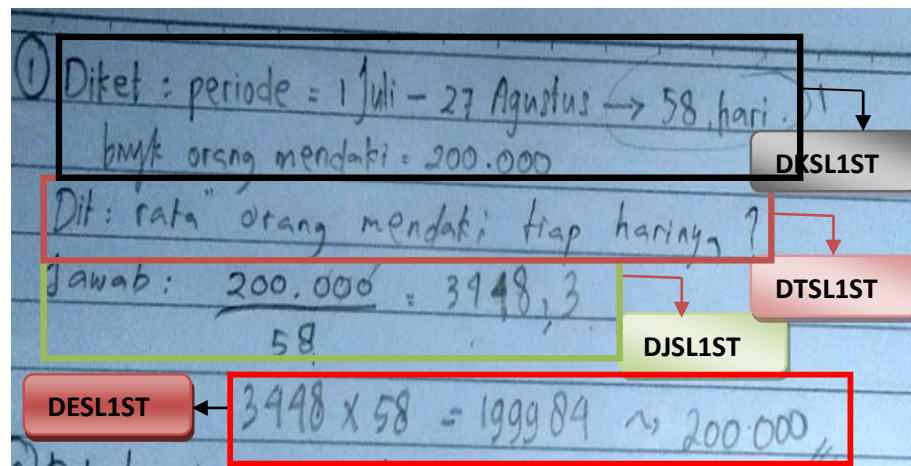 ① Diket : periode = 1 Juli - 27 Agustus → 58 hari.
bnyk orang mendaki = 200.000
DKSL1ST
Dit : rata" orang mendaki tiap harinya ?
DTSL1ST
Jawab : 200.000 = 3448,3
58
DJSL1ST
DESL1ST
3448 x 58 = 199984 ~ 200.000 //